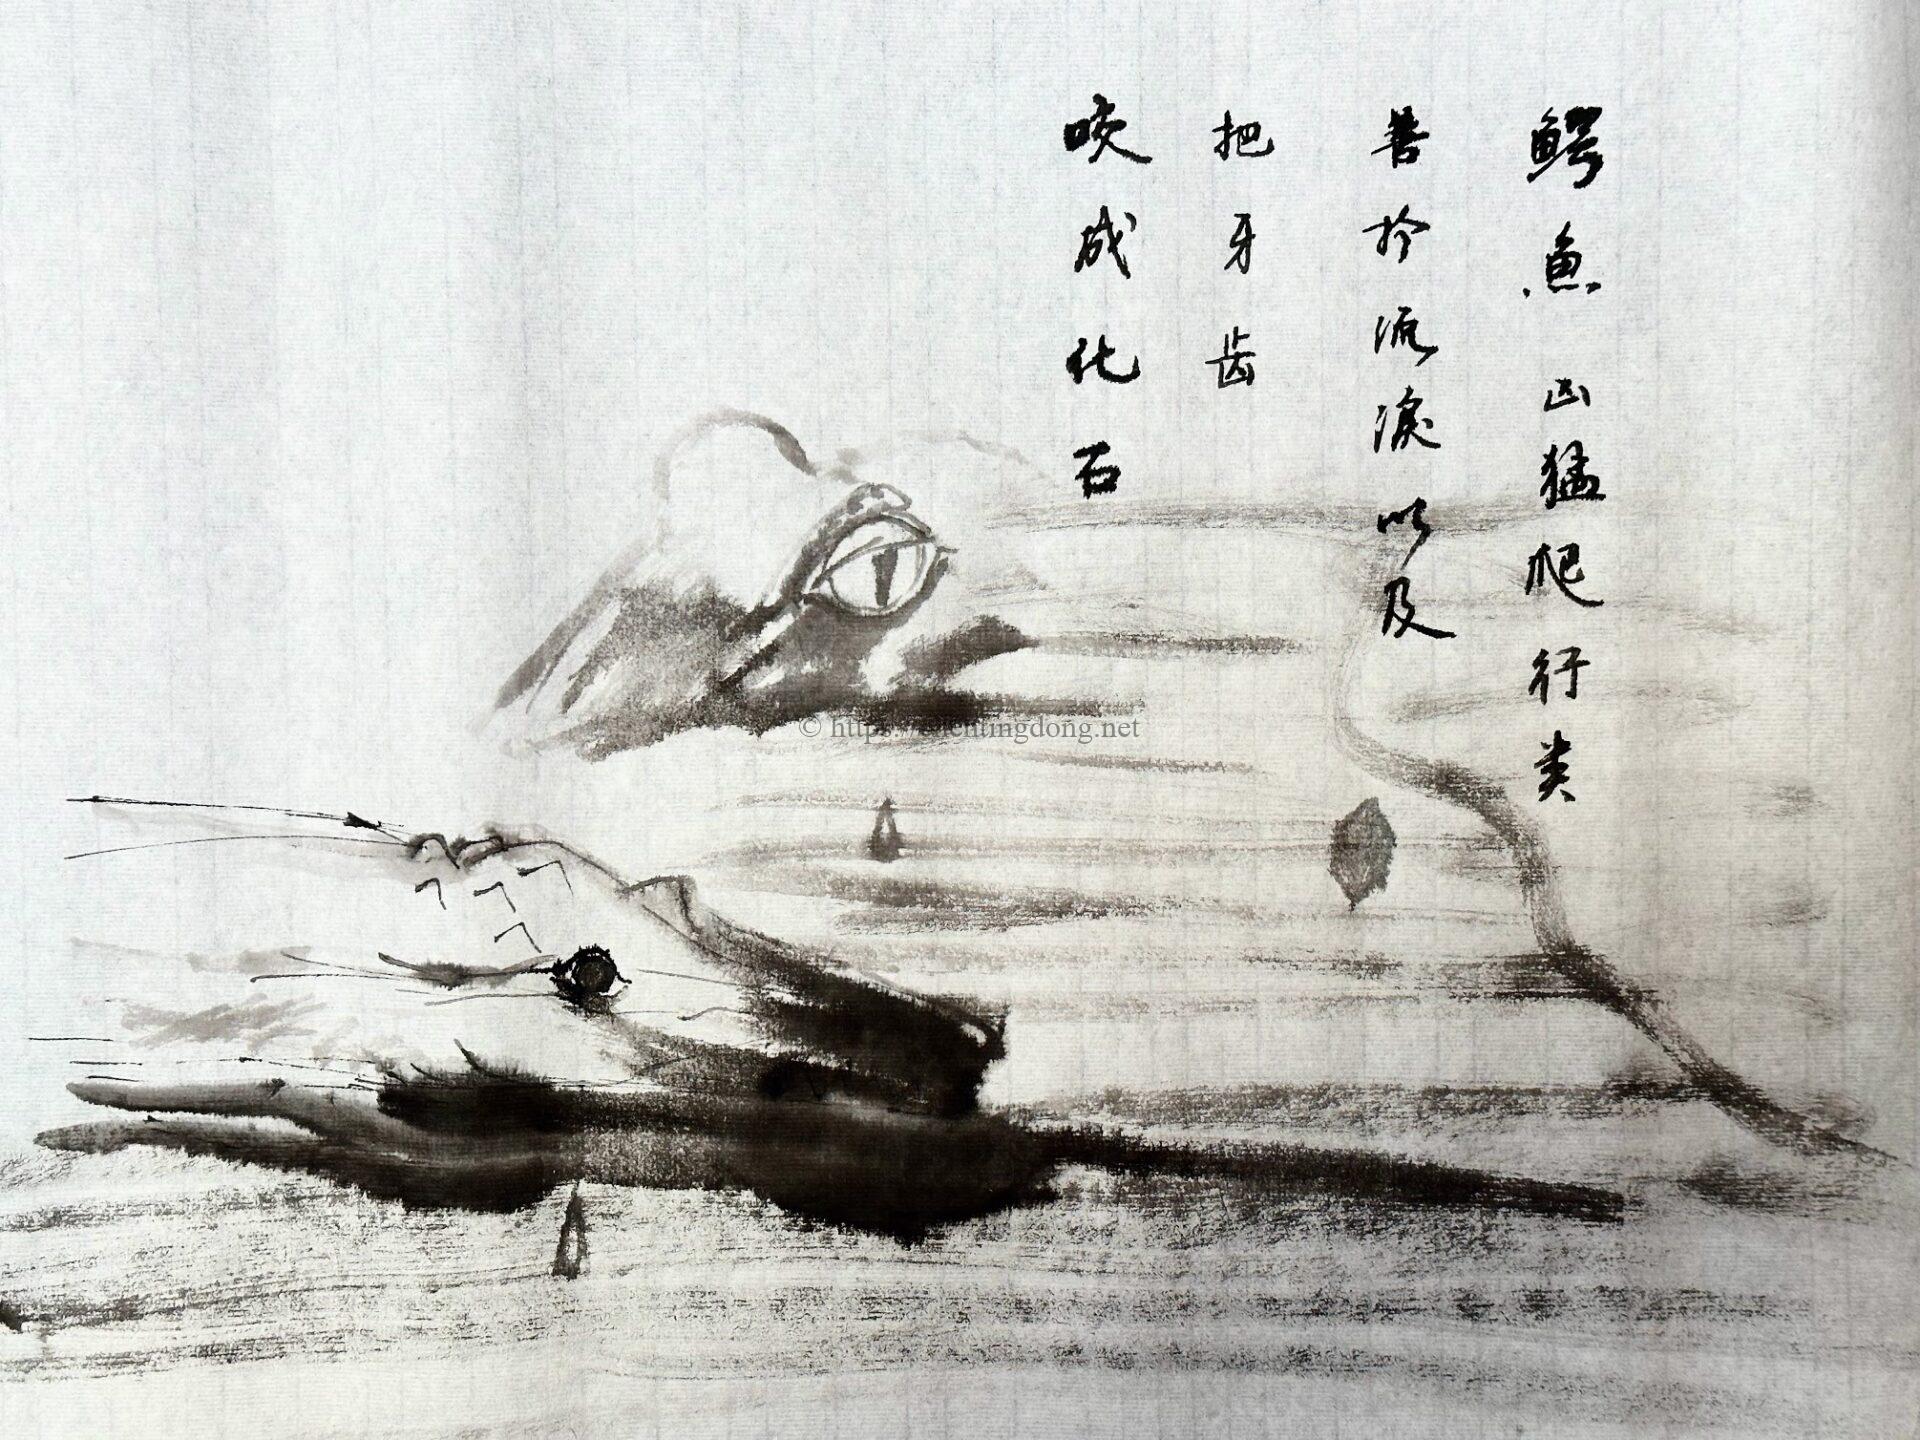 鳄鱼凶猛爬行类
善於流淚以及
把牙齿
咬成化石